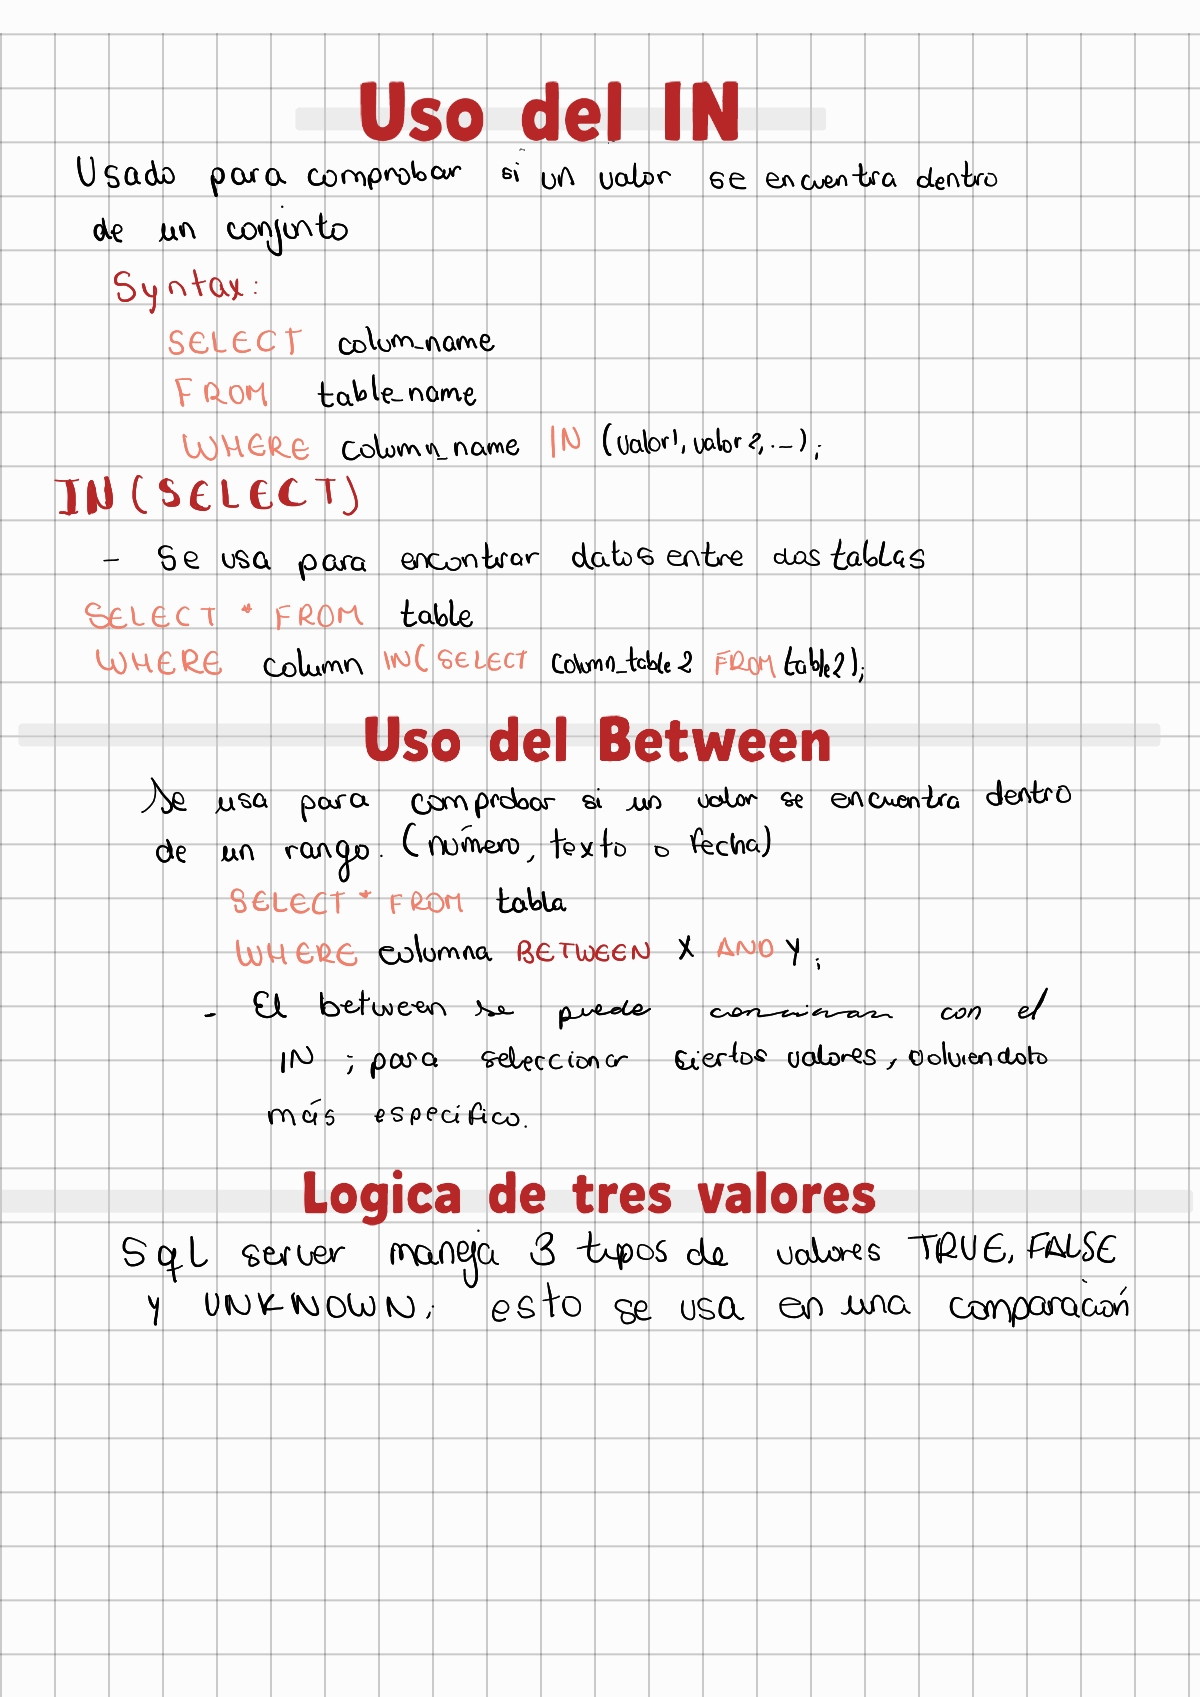 Uso del IN
Usado para comprobar si un valor se encuentra dentro
de un conjunto
Syntax:
SELECT colum_name
FROM table_name
WHERE column_name IN (valor1, valor2, ...);
IN(SELECT)
- Se usa para encontrar datos entre dos tablas
SELECT * FROM table
WHERE column IN(SELECT column_table2 FROM table2);
Uso del Between
Se usa para comprobar si un valor se encuentra dentro
de un rango. (número, texto o fecha)
SELECT * FROM tabla
WHERE columna BETWEEN X AND Y;
- El between se puede con el
IN ; para seleccionar ciertos valores, volviendolo
más específico.
Logica de tres valores
Sql server maneja 3 tipos de valores TRUE, FALSE
y UNKNOWN; esto se usa en una comparación